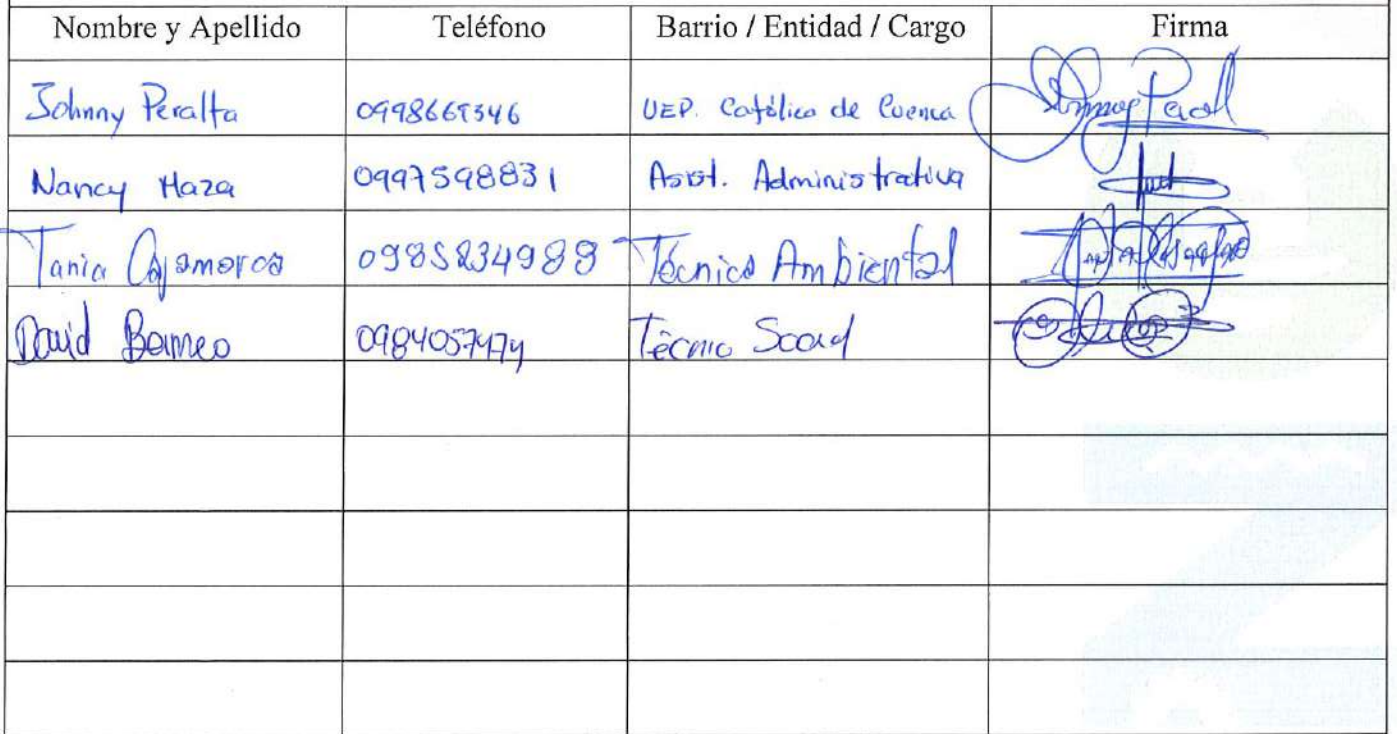 Nombre y Apellido Teléfono Barrio / Entidad / Cargo Firma
Johnny Peralta 0998669346 UEP. Católica de Cuenca
Nancy Maza 0997598831 Asist. Administrativa
Tania Cajamarca 0985834988 Técnica Ambiental
David Bermeo 0984057474 Técnico Social